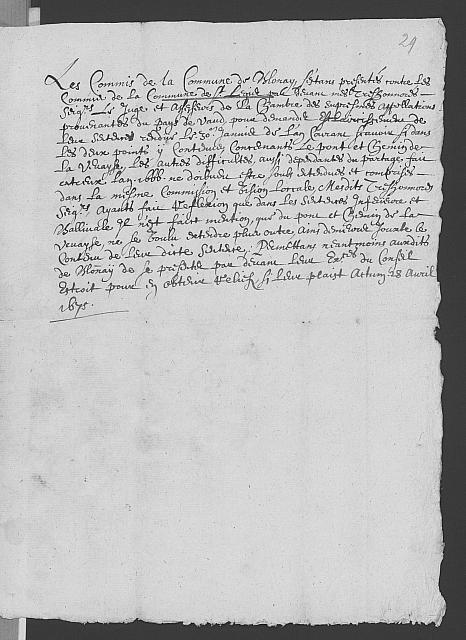 29
Les Commis de la Commune de Blonay, s'etans presentés contre Les
Commis de La Commune de St Legié par devant mes Treshonnorés
Seigrs Les Juge et Assesseurs de La Chambre des Supresmes Appellations
prouenantes du pays de Vaud pour demander
Leur Sentence rendue Le 30e Januier de Lan Courant si dans
Les deux points y Contenus Concernants Le pont et Chemin de
La Veuayse, Les autres difficultes, aussi dependantes du partage, fait
entreux Lan 1666. ne doibuent estre soubs entendues et comprises
dans La mesme Commission et Lorcale, Mesdits Treshonnorés
Seigrs Ayants fait Reflexion que dans Les Sentences Inferieure et
Balliuale Il n'est faict mention, que du pont et Chemin de La
Veuayse, ne Voulu estendre plus outre Ains demeure Toute le
Contenu de Leur ditte Sentence, Remettans neantmoins auxdits
de Blonay de se presenter par deuant Leurs Exces du Conseil
Estroit pour en obtenir Relief si Leur plaist Actum 28 Auril
1675.